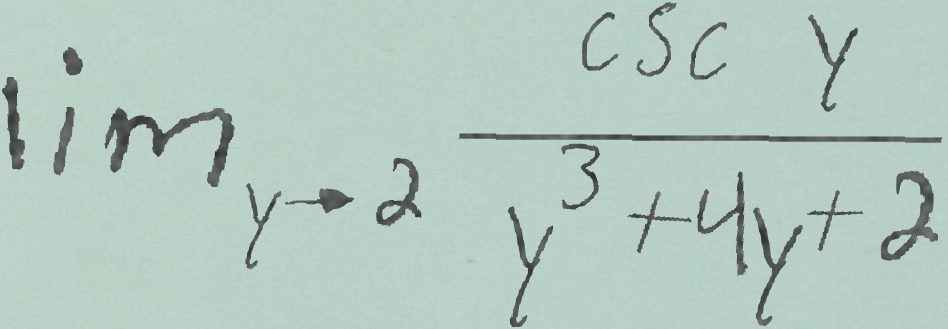 lim_{y→2} \frac{csc y}{y^3+4y+2}